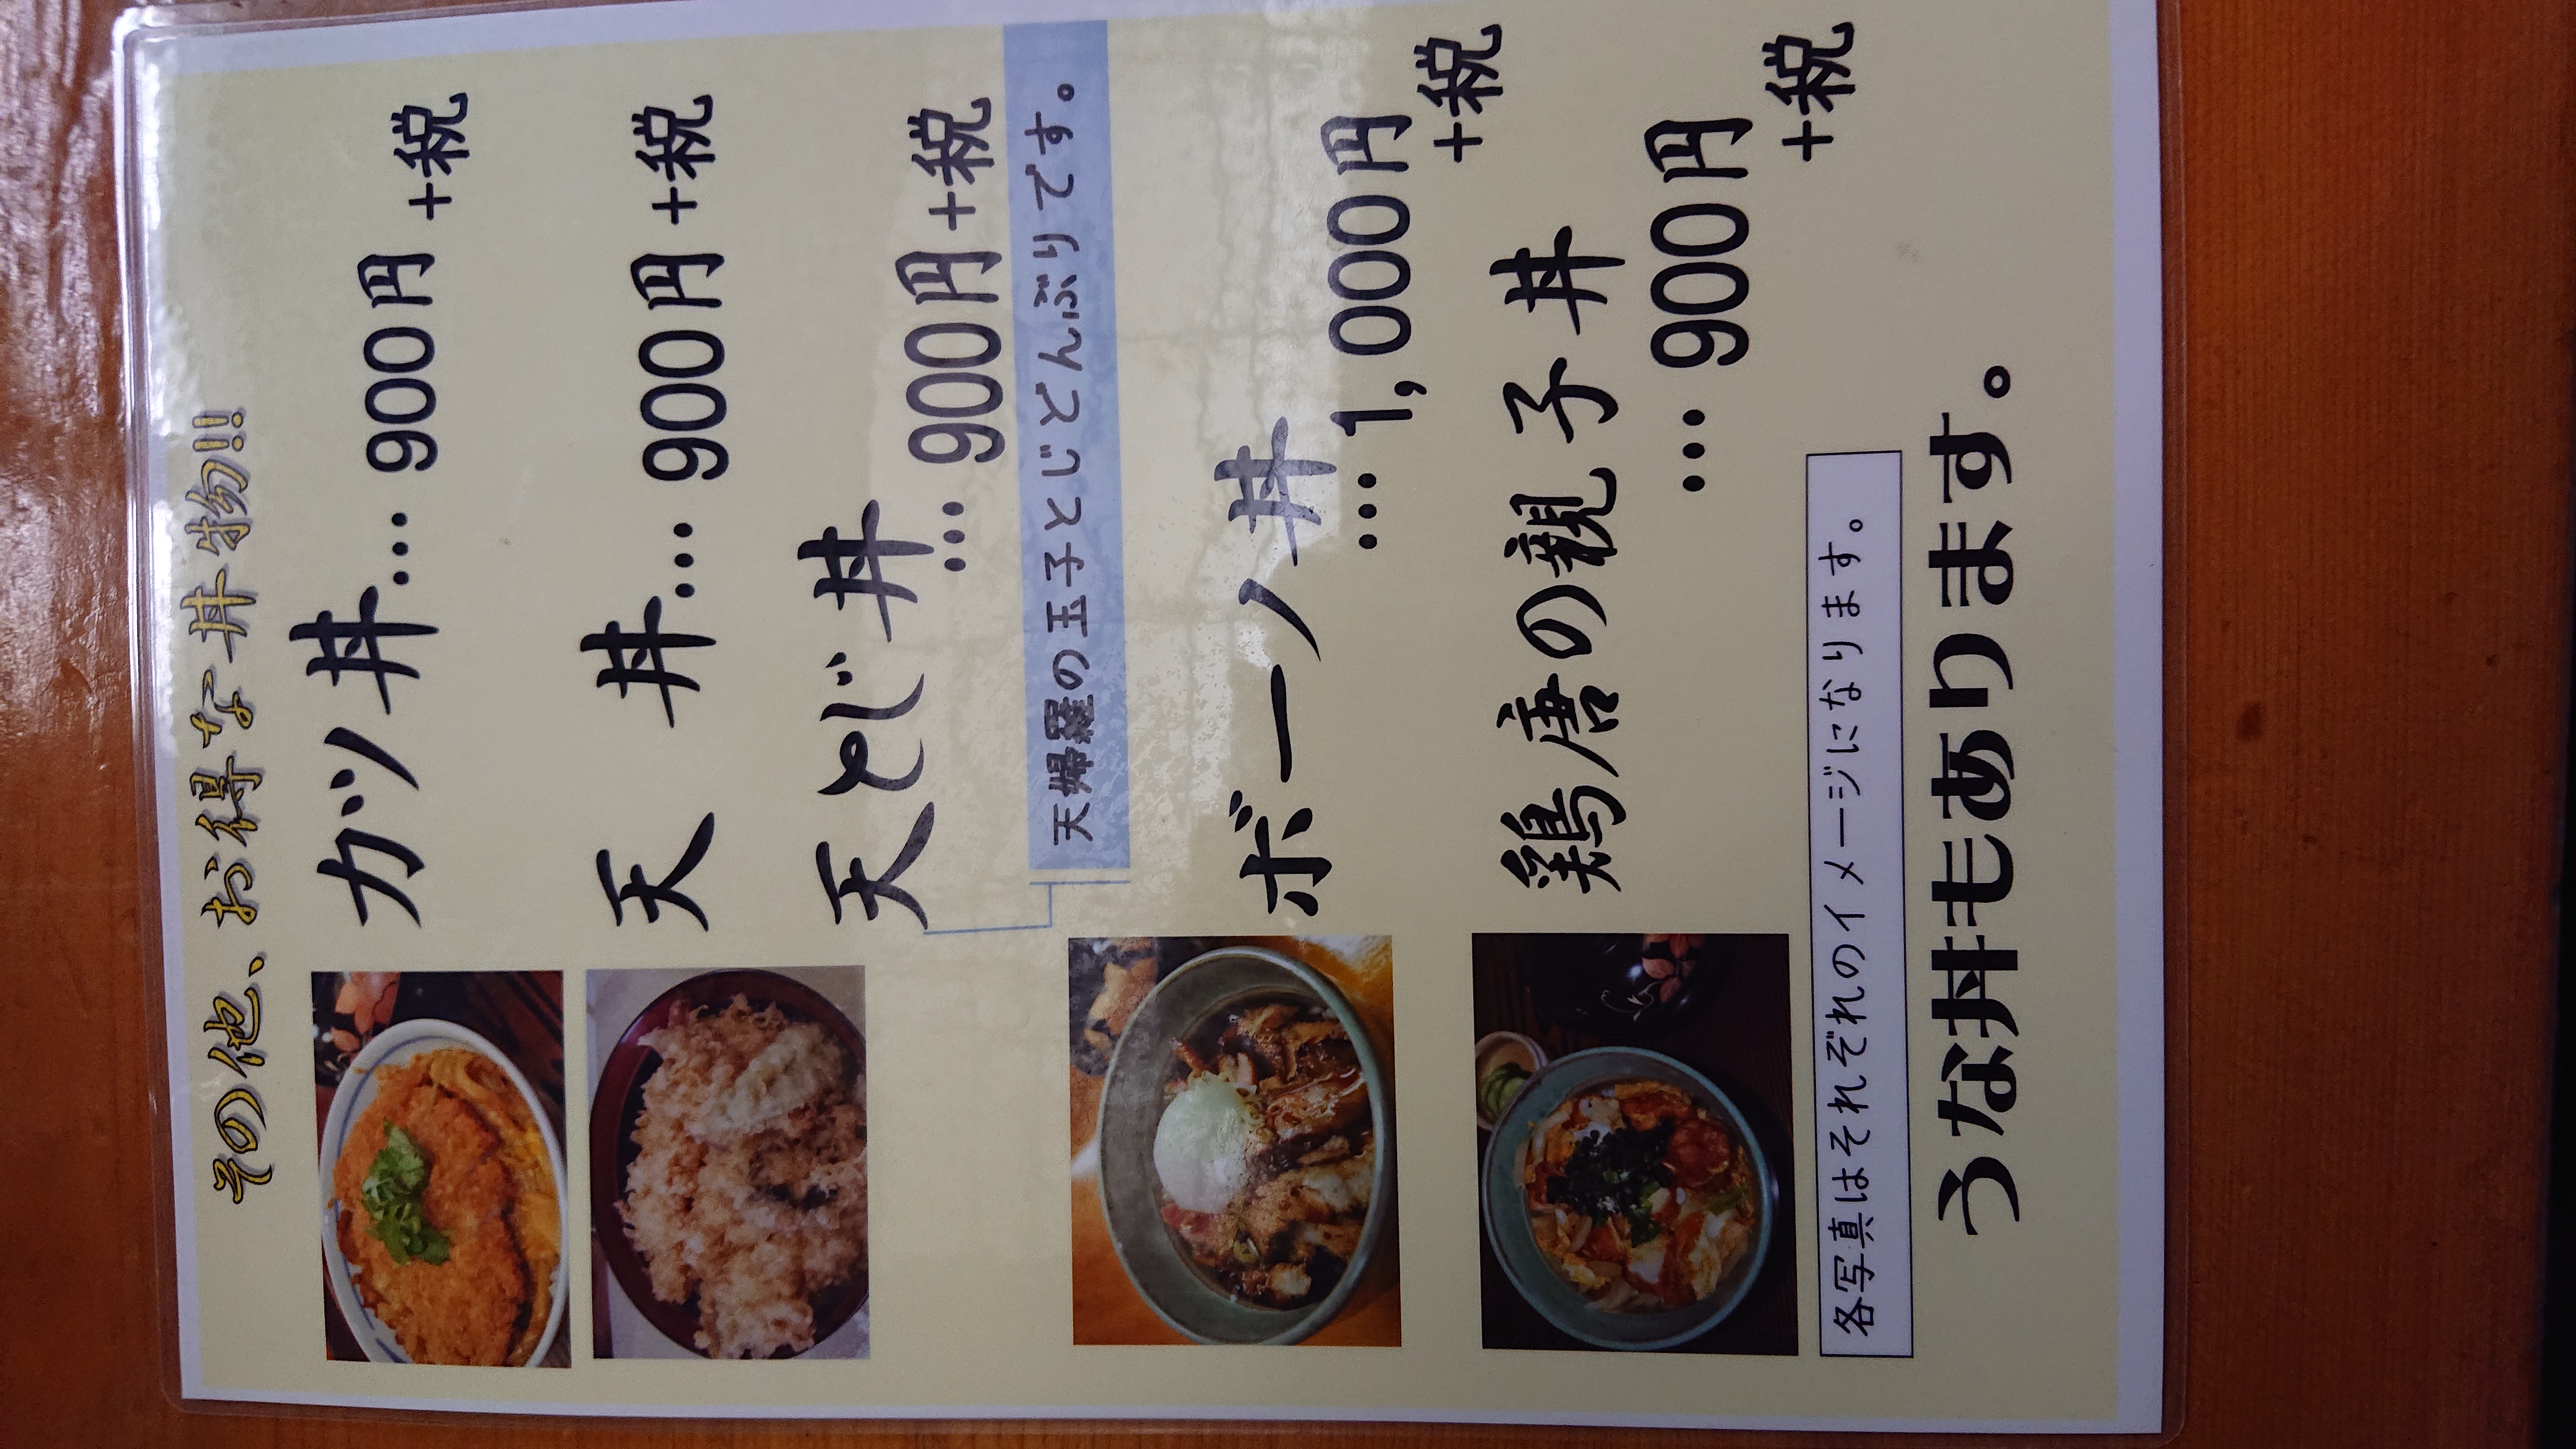 その他、お得な丼物!!
カツ丼… 900円+税
天　丼… 900円+税
天とじ丼
… 900円+税
天婦羅の玉子とじどんぶりです。
ボーノ丼
… 1,000円
+税
鶏唐の親子丼
… 900円
+税
各写真はそれぞれのイメージになります。
うな丼もあります。